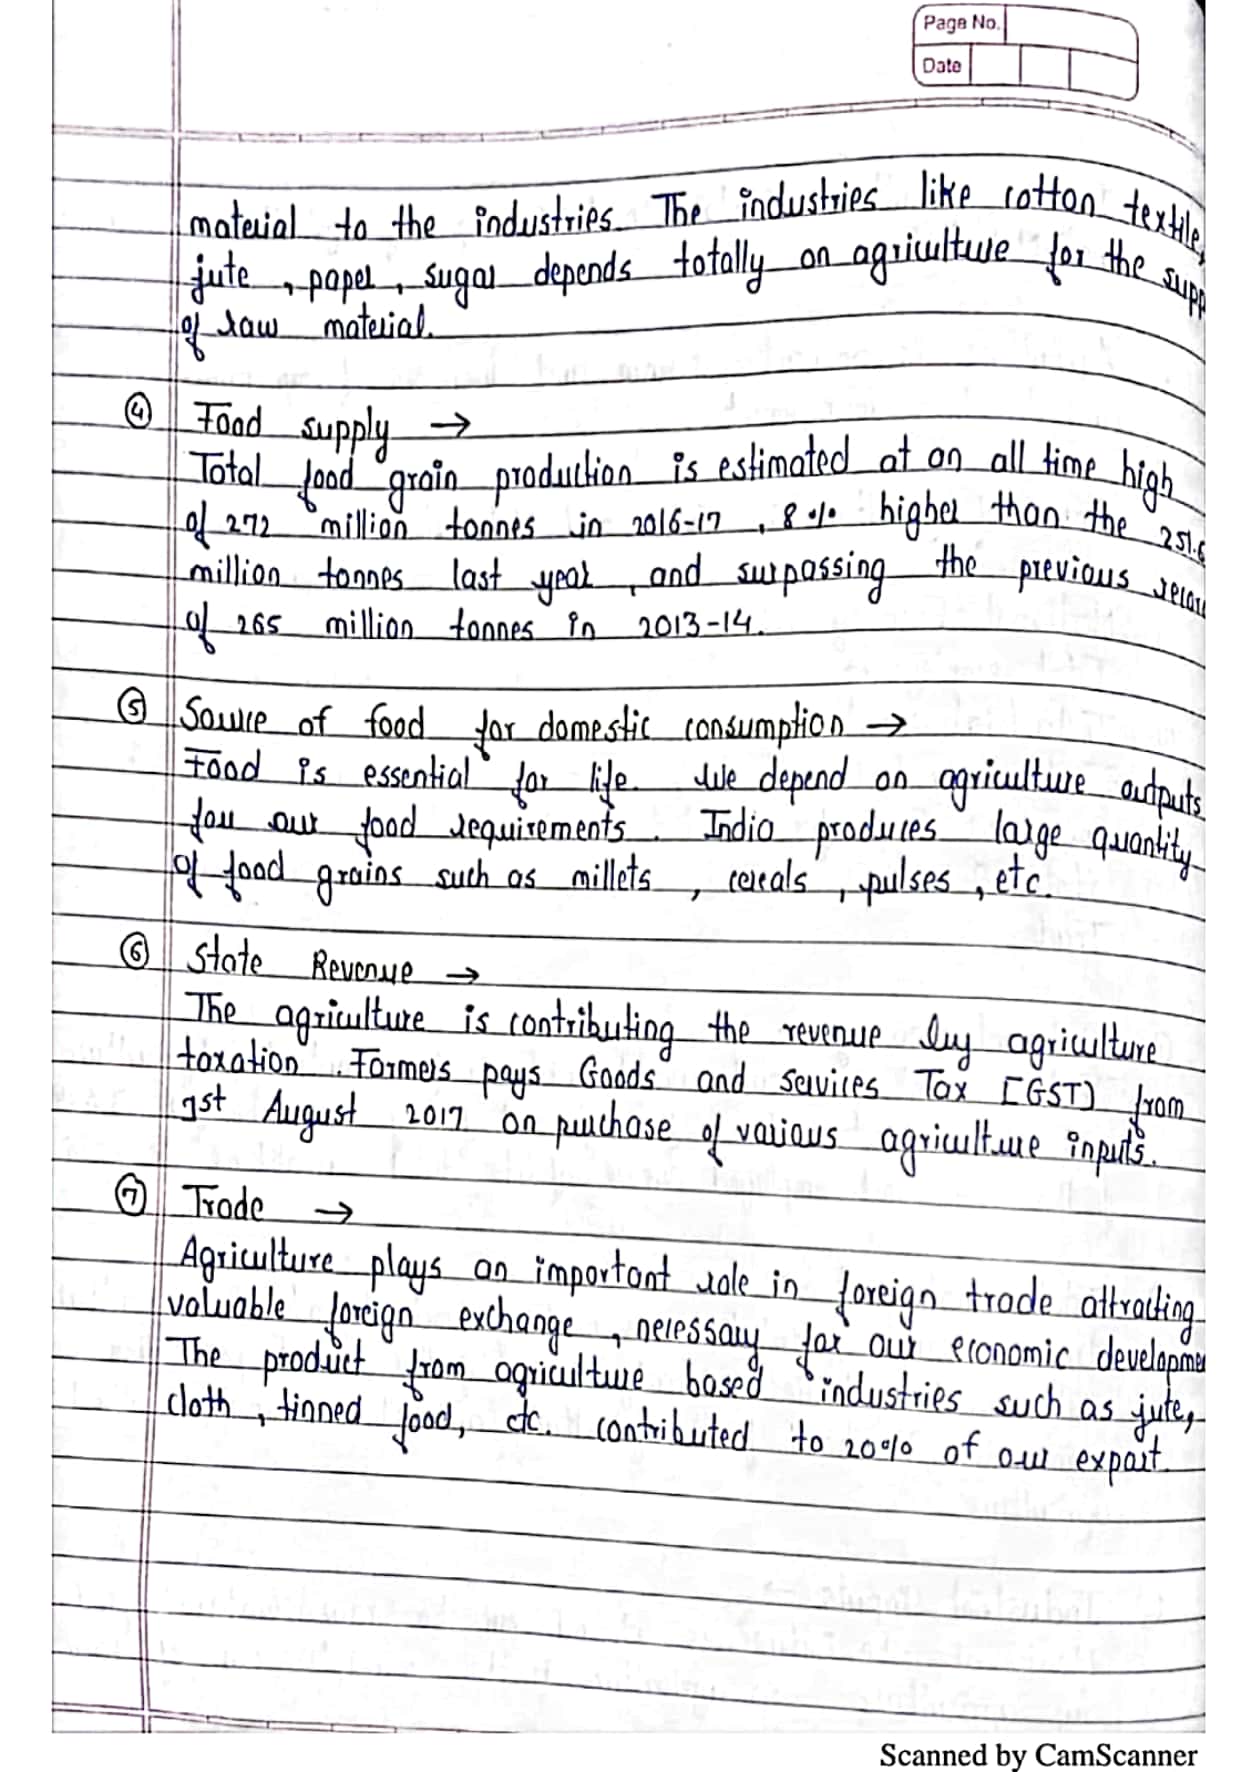 Page No.
Date
material to the industries. The industries like cotton textile,
jute, paper, sugar depends totally on agriculture for the supp
of raw material.
④ Food supply →
Total food grain production is estimated at an all time high
of 272 million tonnes in 2016-17, 8% higher than the 251.6
million tonnes last year, and surpassing the previous recor
of 265 million tonnes in 2013-14.
⑤ Source of food for domestic consumption →
Food is essential for life. We depend on agriculture outputs
for our food requirements. India produces large quantity
of food grains such as millets, cereals, pulses, etc.
⑥ State Revenue →
The agriculture is contributing the revenue by agriculture
taxation. Farmers pays Goods and Services Tax [GST] from
1st August 2017 on purchase of various agriculture inputs.
⑦ Trade →
Agriculture plays an important role in foreign trade attracting
valuable foreign exchange, necessary for our economic developme
The product from agriculture based industries such as jute,
cloth, tinned food, etc. contributed to 20% of our export.
Scanned by CamScanner